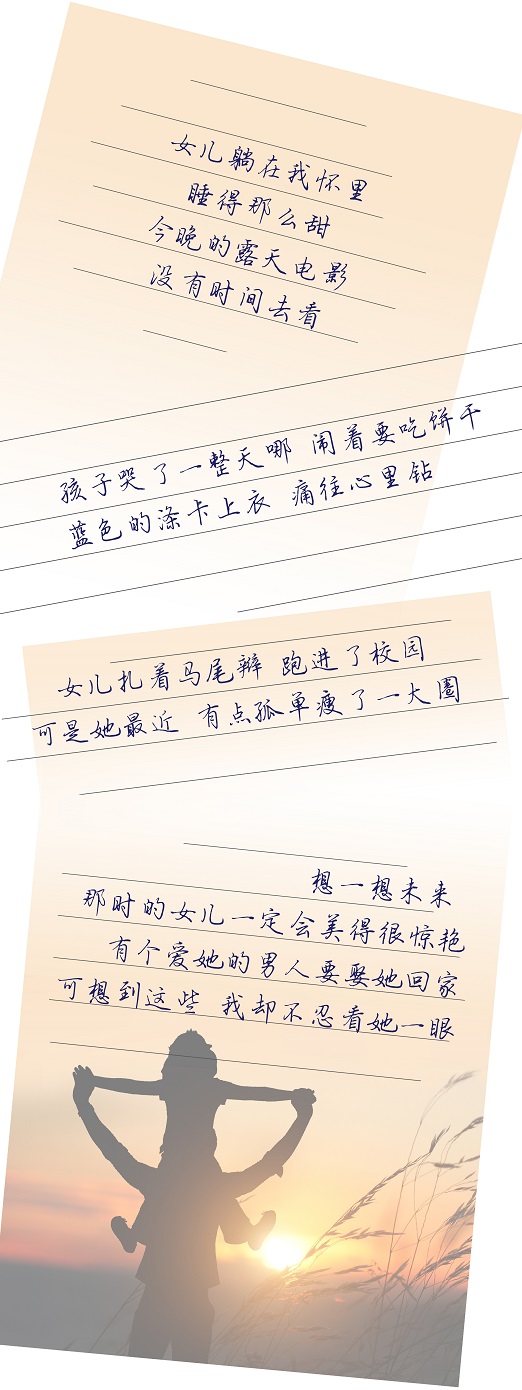 女儿躺在我怀里
睡得那么甜
今晚的露天电影
没有时间去看
孩子哭了一整天哪 闹着要吃饼干
蓝色的涤卡上衣 痛往心里钻
女儿扎着马尾辫 跑进了校园
可是她最近 有点孤单瘦了一大圈
想一想未来
那时的女儿一定会美得很惊艳
有个爱她的男人要娶她回家
可想到这些 我却不忍看她一眼